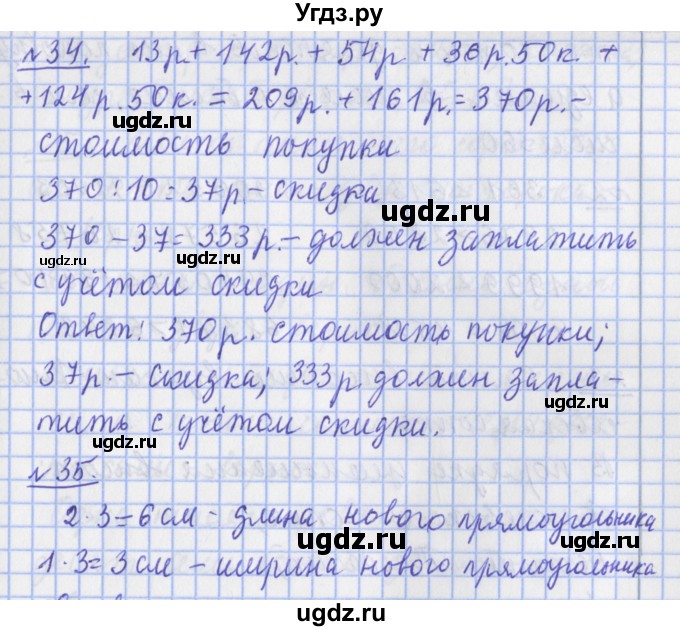 Угдз.ру
№34. 13р.+ 142р. + 54р + 36р.50к. +
+124р.50к. = 209р. + 161р.= 370р.–
стоимость покупки
370:10=37р – скидка
370 – 37= 333р.– должен заплатить
с учётом скидки
Ответ: 370р. стоимость покупки;
37р.– скидка; 333р должен запла-
тить с учётом скидки.
№35.
2·3=6см – длина нового прямоугольника
1·3=3см – ширина нового прямоугольника
ugdz.ru
ugdz.ru
ugdz.ru
ugdz.ru
ugdz.ru
ugdz.ru
ugdz.ru
ugdz.ru
ugdz.ru
ugdz.ru
ugdz.ru